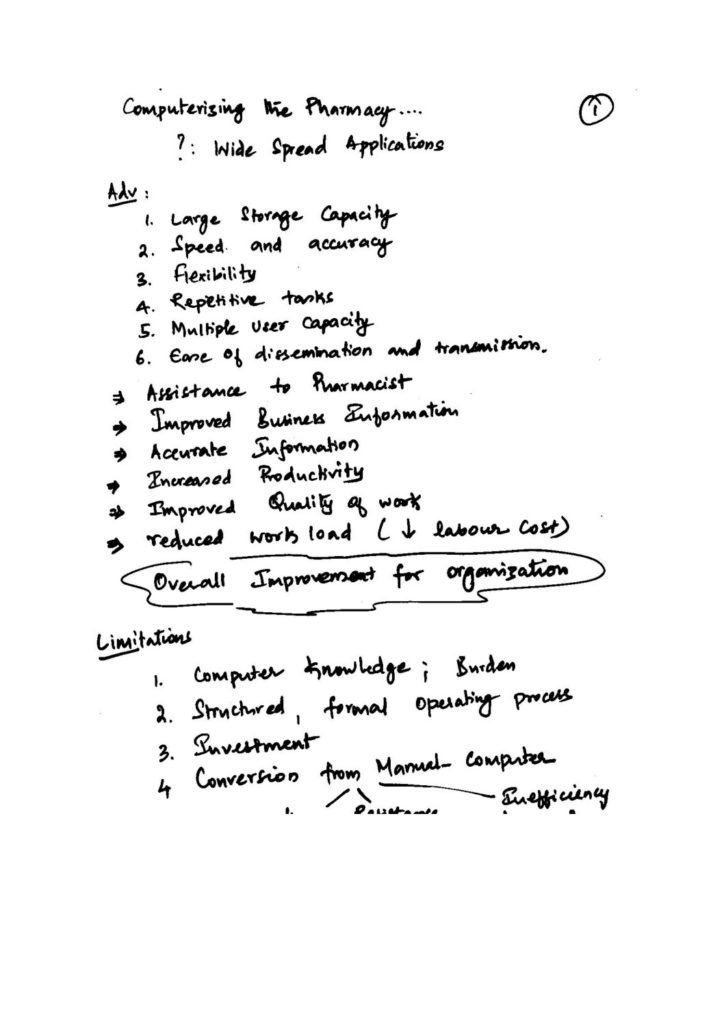 Computerizing the Pharmacy.... 1
?: Wide Spread Applications
Adv:
1. Large Storage Capacity
2. Speed and accuracy
3. Flexibility
4. Repetitive tasks
5. Multiple User Capacity
6. Ease of dissemination and transmission.
⇒ Assistance to Pharmacist
⇒ Improved Business Information
⇒ Accurate Information
⇒ Increased Productivity
⇒ Improved Quality of work
⇒ reduced work load (↓ labour cost)
Overall Improvement for organization
Limitations
1. Computer knowledge; Burden
2. Structured, formal Operating process
3. Investment
4 Conversion from Manual- Computer
Inefficiency
Resistance